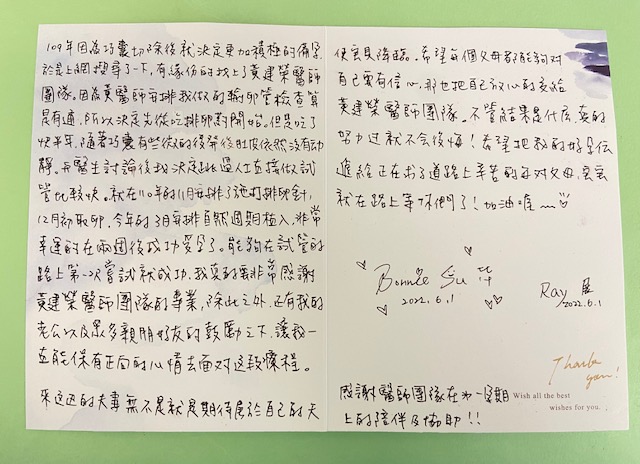 109年因為巧囊切除後就決定更加積極的備孕
於是上網搜尋了一下,有緣份的找上了黃建榮醫師
團隊。因為黃醫師安排我做的輸卵管檢查算
是有通,所以決定先從吃排卵藥開始。但是吃了
快半年,隨著巧囊有些微的復發後肚皮依然沒有動
靜,與醫生討論後我決定跳過人工直接做試
管比較快。就在110年的11月安排了施打排卵針,
12月初取卵,今年的3月安排自然週期植入,非常
幸運的在兩週後成功受孕了。能夠在試管的
路上第一次嘗試就成功,我真的要非常感謝
黃建榮醫師團隊的專業,除此之外,還有我的
老公以及眾多親朋好友的鼓勵之下,讓我一
直能保有正向的心情去面對這段療程。
來這邊的夫妻無不是就是期待屬於自己的天
使寶貝降臨。希望每個父母都能夠對
自己要有信心,那也把自己放心的交給
黃建榮醫師團隊,不管結果是什麼,真的
努力過就不會後悔!希望把我的好孕傳
遞給正在求子道路上辛苦的每對父母,寶寶
就在路上等你們了!加油喔~
Bonnie Su
2022.6.1
Ray
2022.6.1
Thank
you!
感謝醫師團隊在每一星期
Wish all the best
wishes for you.
上的陪伴及協助!!